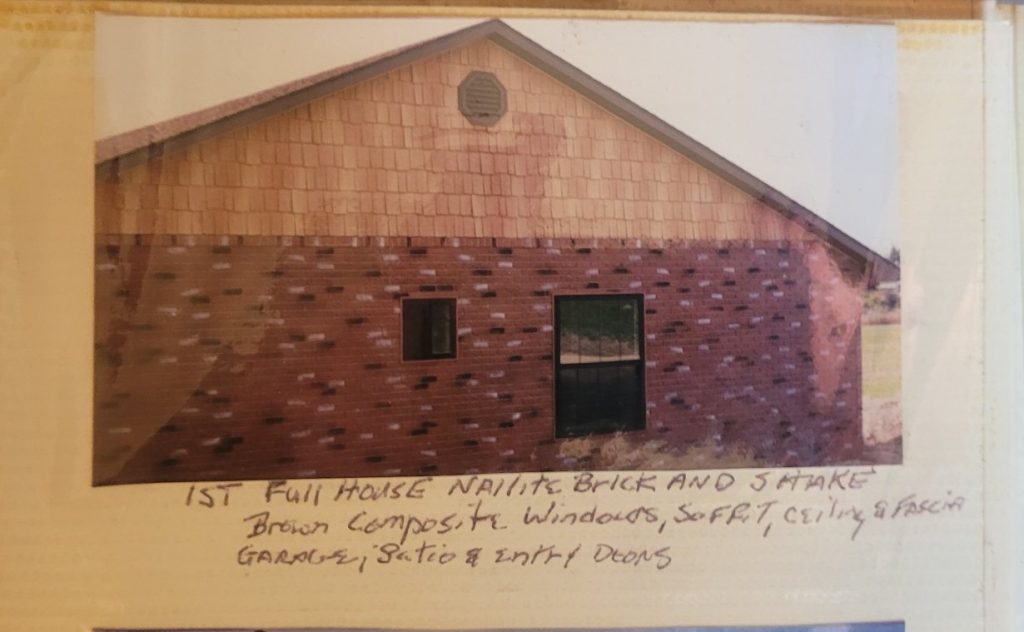 1ST Full HOUSE NAilite Brick AND SHAKE
Brown Composite Windows, SOFFiT, Ceiling & FASCIA
GARAGE, Patio & ENtry DOORS